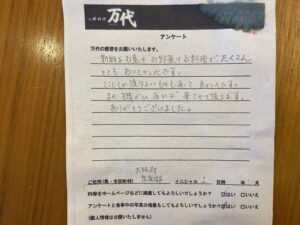 万代
アンケート
万代の感想をお願いいたします。
新鮮なお魚やお野菜のお料理がたくさん
とてもおいしかったです。
ここでしか頂けないものもあって
また機会があれば 来させて頂きます。
ありがとうございました。
大阪府
ご住所(県・市区町村) イニシャル
内容をホームページなどに掲載してもよろしいでしょうか? はい □いいえ
アンケートと食事中の写真の掲載もしてもよろしいでしょうか? はい □いいえ
(個人情報は公開いたしません)